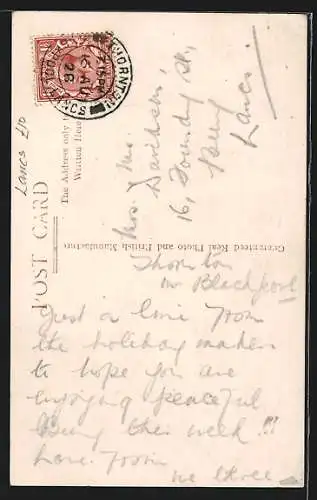 POST CARD
The Address only
Written Here
Guaranteed Real Photo and British Manufacture
LANCS £10
THORNTON
LANCS
Mrs. Mc
Davidson
16, Foundry St.,
Bury
Lancs.
Thornton
nr Blackpool
Just a line from
the holiday makers
to hope you are
enjoying peaceful
Bury this week !!!
Love from
we three